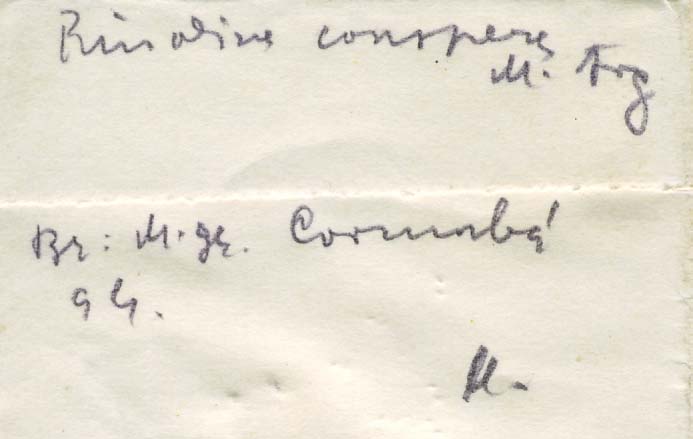 Rinodina conspersa
M. Arg
Br: M. gr. Corumbá
94.
M.